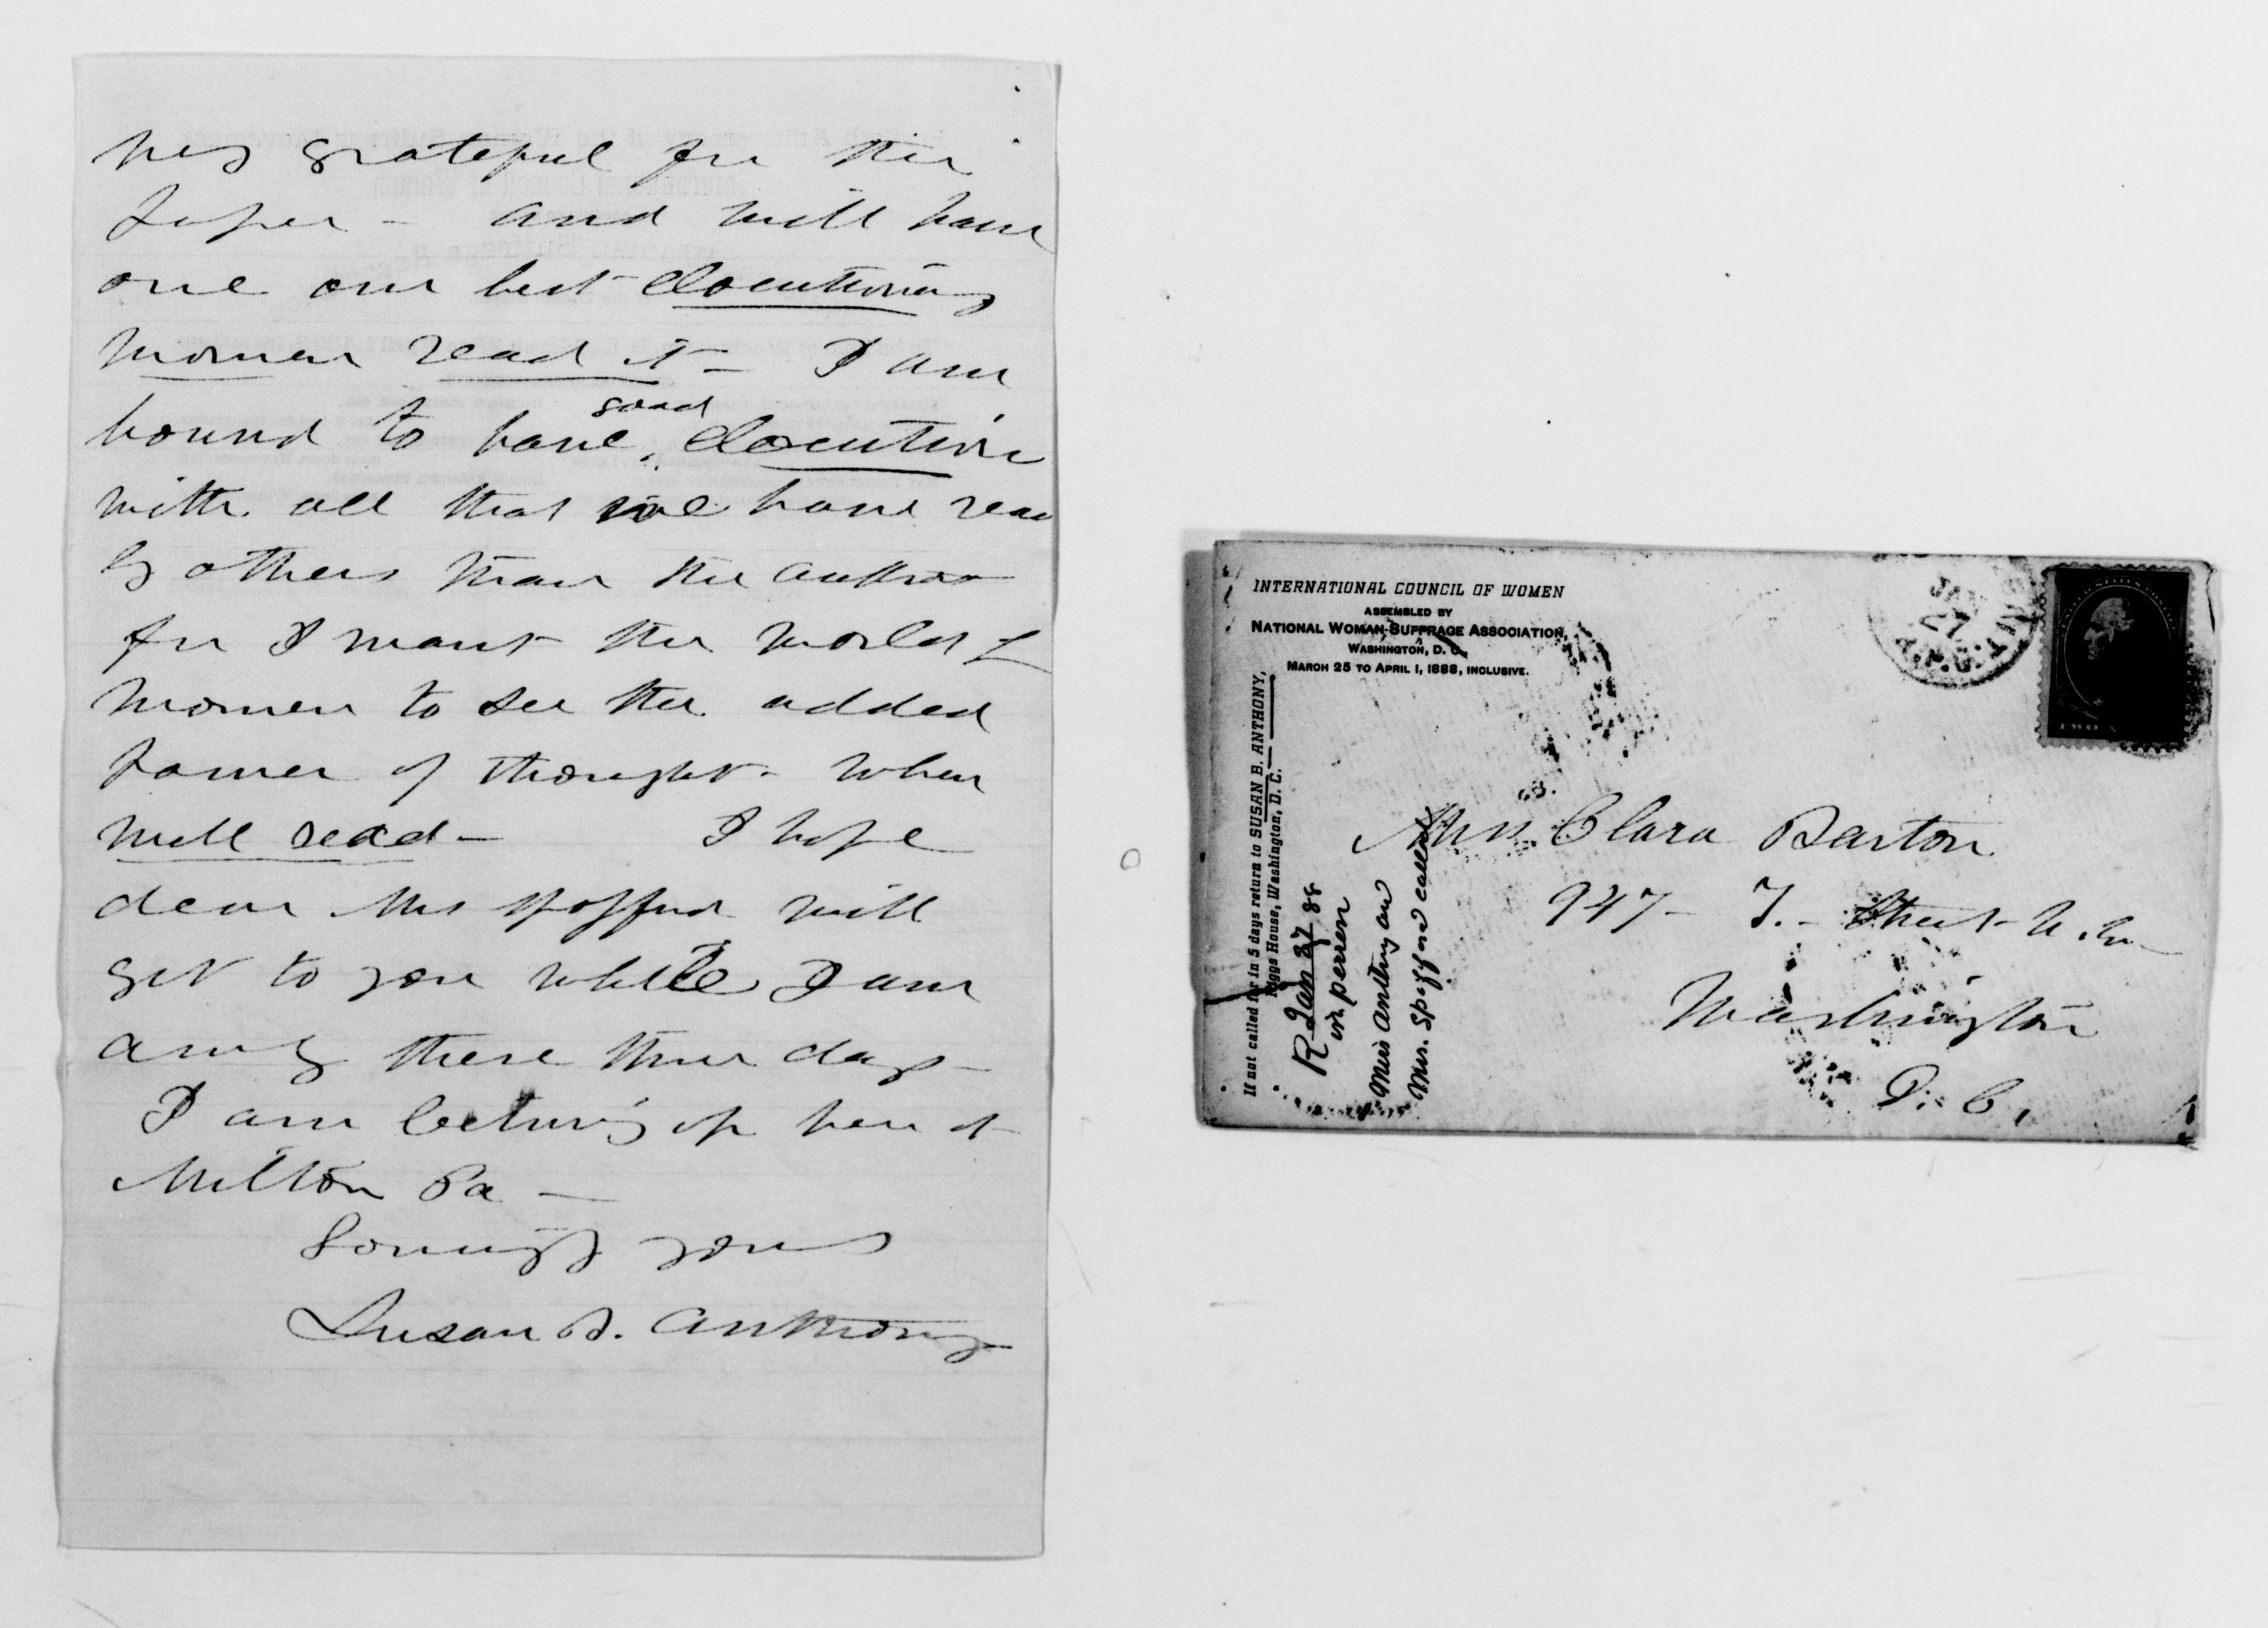 very grateful for the
paper - and will have
one our best elocutionary
women read it - I am
good
bound to have, elocution
with all that we have read
by others than the author
for I want the world of
women to see the added
power of thought - when
well read - I hope
dear Mrs Spofford will
get to you while I am
away these three days -
I am lecturing up here at
Milton Pa -
Lovingly yours
Susan B. Anthony
INTERNATIONAL COUNCIL OF WOMEN
ASSEMBLED BY
NATIONAL WOMAN-SUFFRAGE ASSOCIATION,
WASHINGTON, D. C.
MARCH 25 TO APRIL 1, 1888, INCLUSIVE.
If not called for in 5 days return to SUSAN B. ANTHONY,
Riggs House, Washington, D. C.
R Jan 27 88
in person
Miss Anthony and
Mrs. Spofford called
JAN
27
Miss Clara Barton
947 - T. - Street N. W.
Washington
D. C.